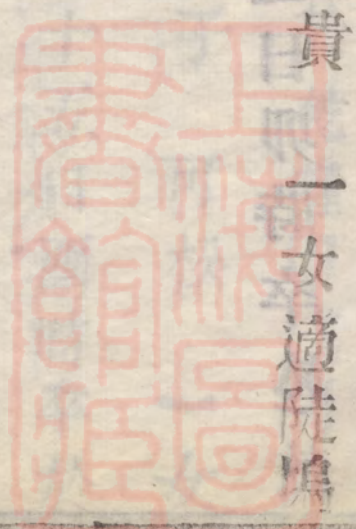 貴　一女適陡塢
上海圖
書館藏